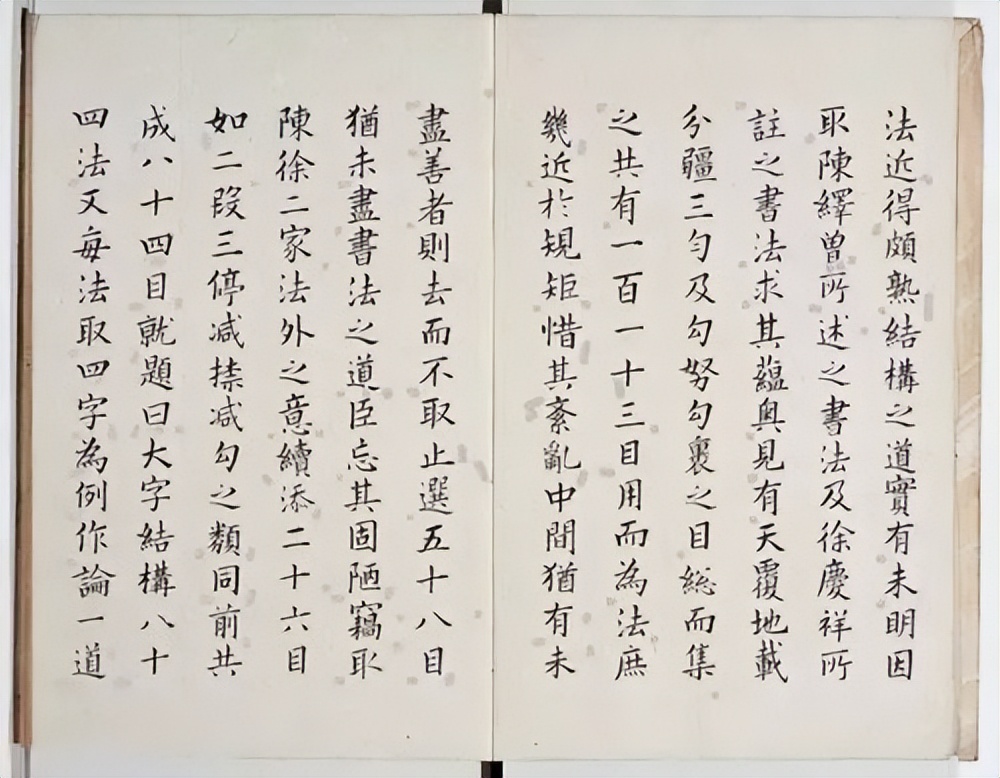 法近得頗熟結構之道實有未明因
取陳繹曾所述之書法及徐慶祥所
註之書法求其蘊奧見有天覆地載
分疆三勻及勾努勾裹之目総而集
之共有一百一十三目用而為法庶
幾近於規矩惜其紊亂中間猶有未
盡善者則去而不取止選五十八目
猶未盡書法之道臣忘其固陋竊取
陳徐二家法外之意續添二十六目
如二段三停减捺减勾之類同前共
成八十四目就題曰大字結構八十
四法又每法取四字為例作論一道